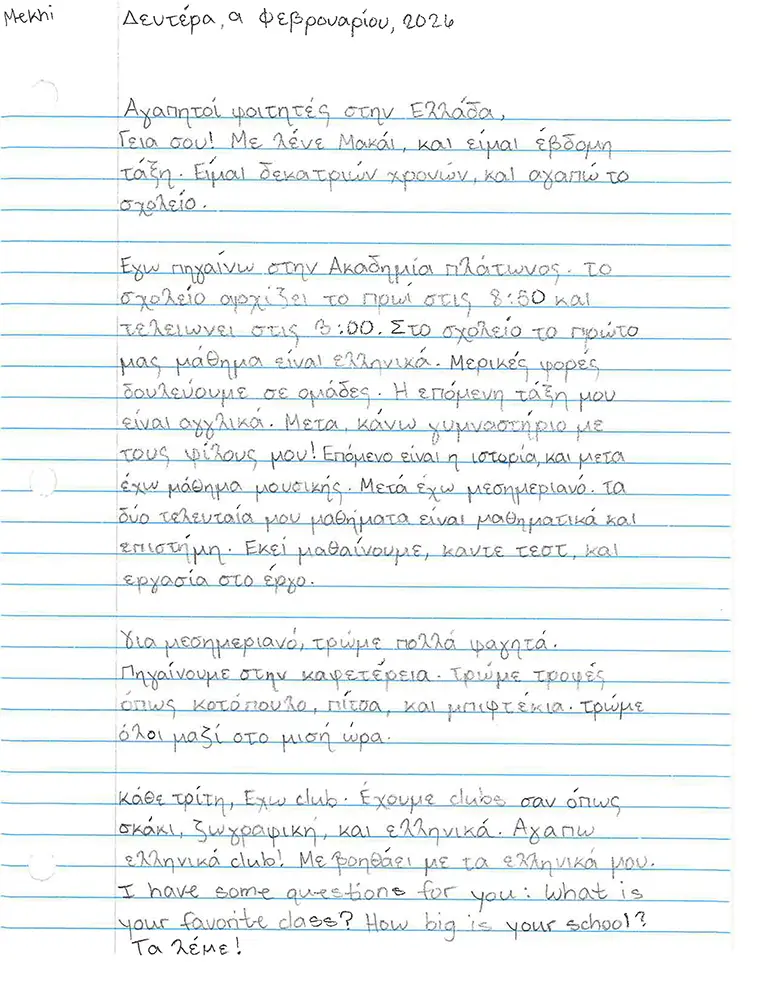 Mekhi
Δευτέρα, 9 Φεβρουαρίου, 2026
Αγαπητοί φοιτητές στην Ελλάδα,
Γεια σου! Με λένε Μακάι, και είμαι έβδομη
τάξη. Είμαι δεκατριών χρονών, και αγαπώ το
σχολείο.
Εγω πηγαίνω στην Ακαδημία πλάτωνος. το
σχολείο αρχίζει το πρωί στις 8:50 και
τελειωνει στις 3:00. Στο σχολείο το πρώτο
μας μάθημα είναι ελληνικά. Μερικές φορές
δουλεύουμε σε ομάδες. Η επόμενη τάξη μου
είναι αγγλικά. Μετα, κάνω γυμναστήριο με
τους φίλους μου! Επόμενο είναι η ιστορία, και μετα
έχω μάθημα μουσικής. Μετά έχω μεσημεριανό. τα
δύο τελευταία μου μαθήματα είναι μαθηματικά και
επιστήμη. Εκεί μαθαίνουμε, καντε τεστ, και
εργασία στο έργο.
για μεσημεριανό, τρώμε πολλά φαγητά.
Πηγαίνουμε στην καφετέρεια. τρώμε τροφές
όπως κοτόπουλο, πίτσα, και μπιφτέκια. τρώμε
όλοι μαζί στο μισή ώρα.
κάθε τρίτη, Εχω club. Έχουμε clubs σαν όπως
σκάκι, ζωγραφική, και ελληνικά. Αγαπω
ελληνικά club! Με βοηθάει με τα ελληνικά μου.
I have some questions for you: What is
your favorite class? How big is your school?
Τα λέμε!